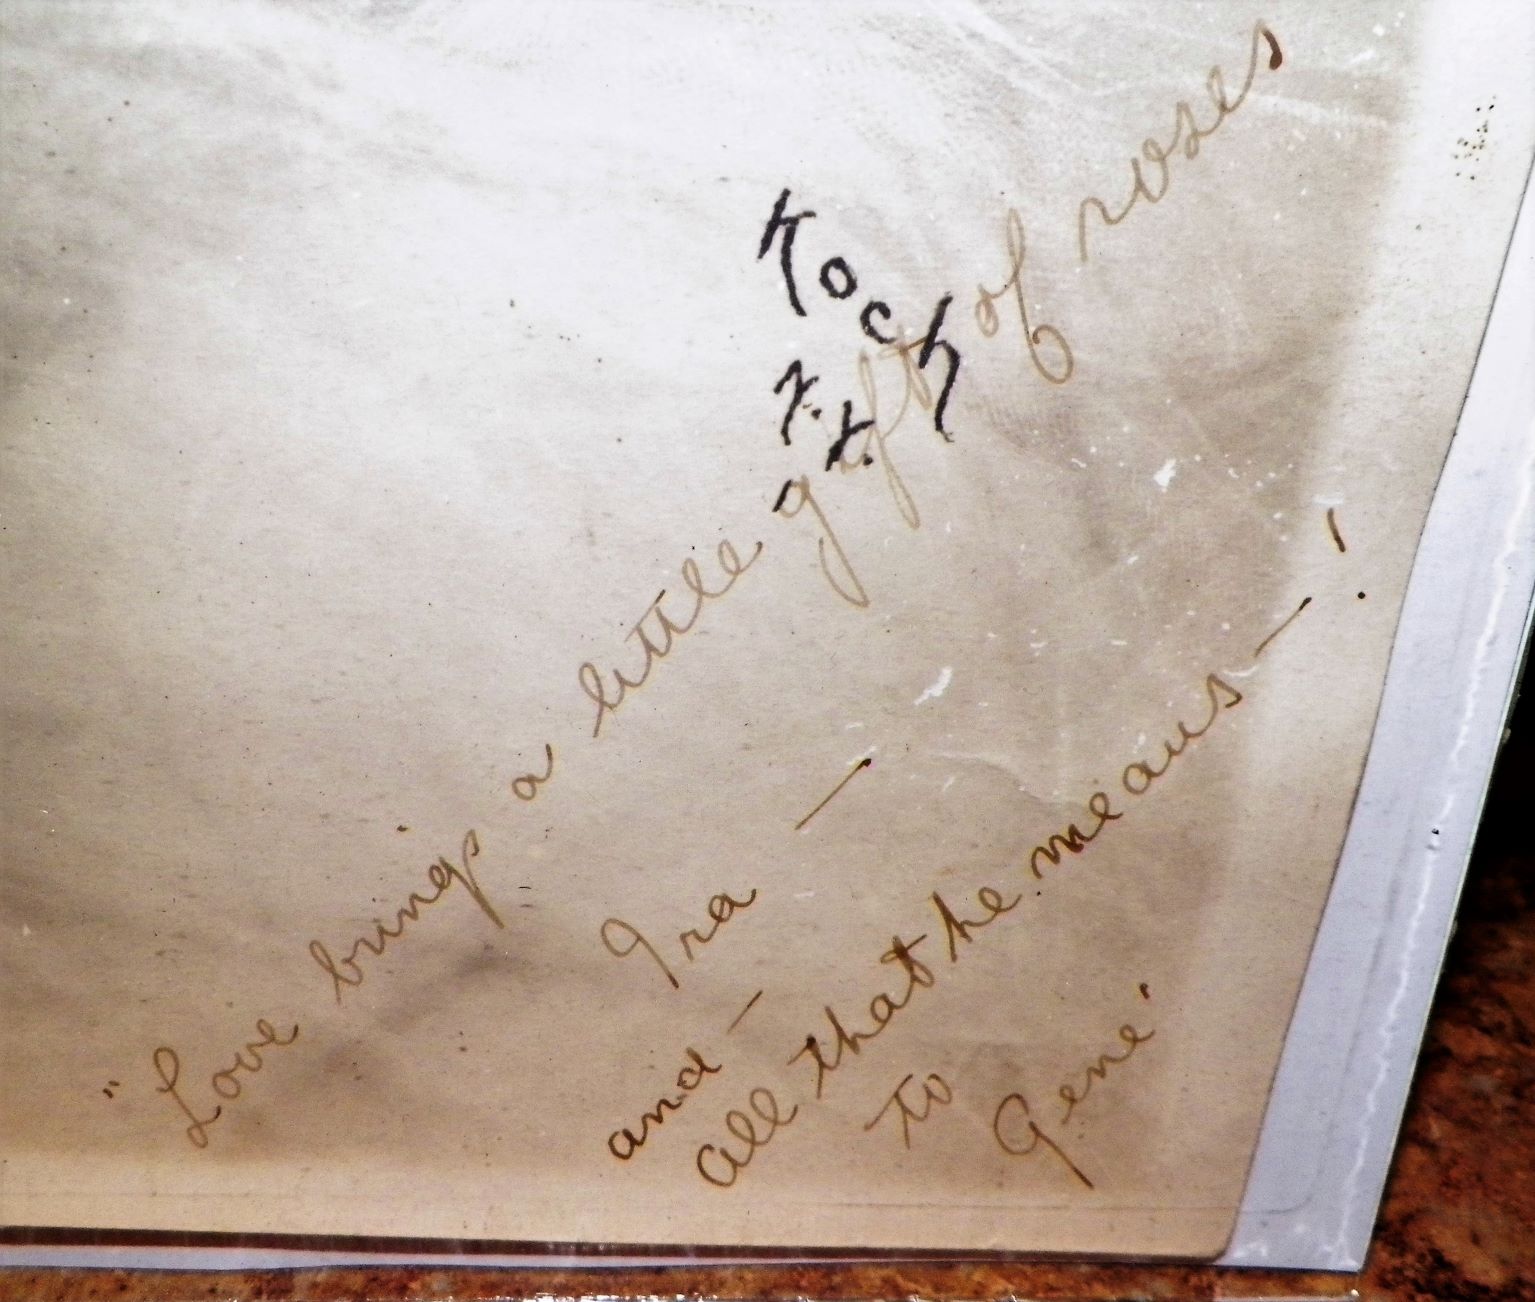 Koch
"Love brings a little gift of roses
Ira —
and —
all that he means — !
to
Gene'